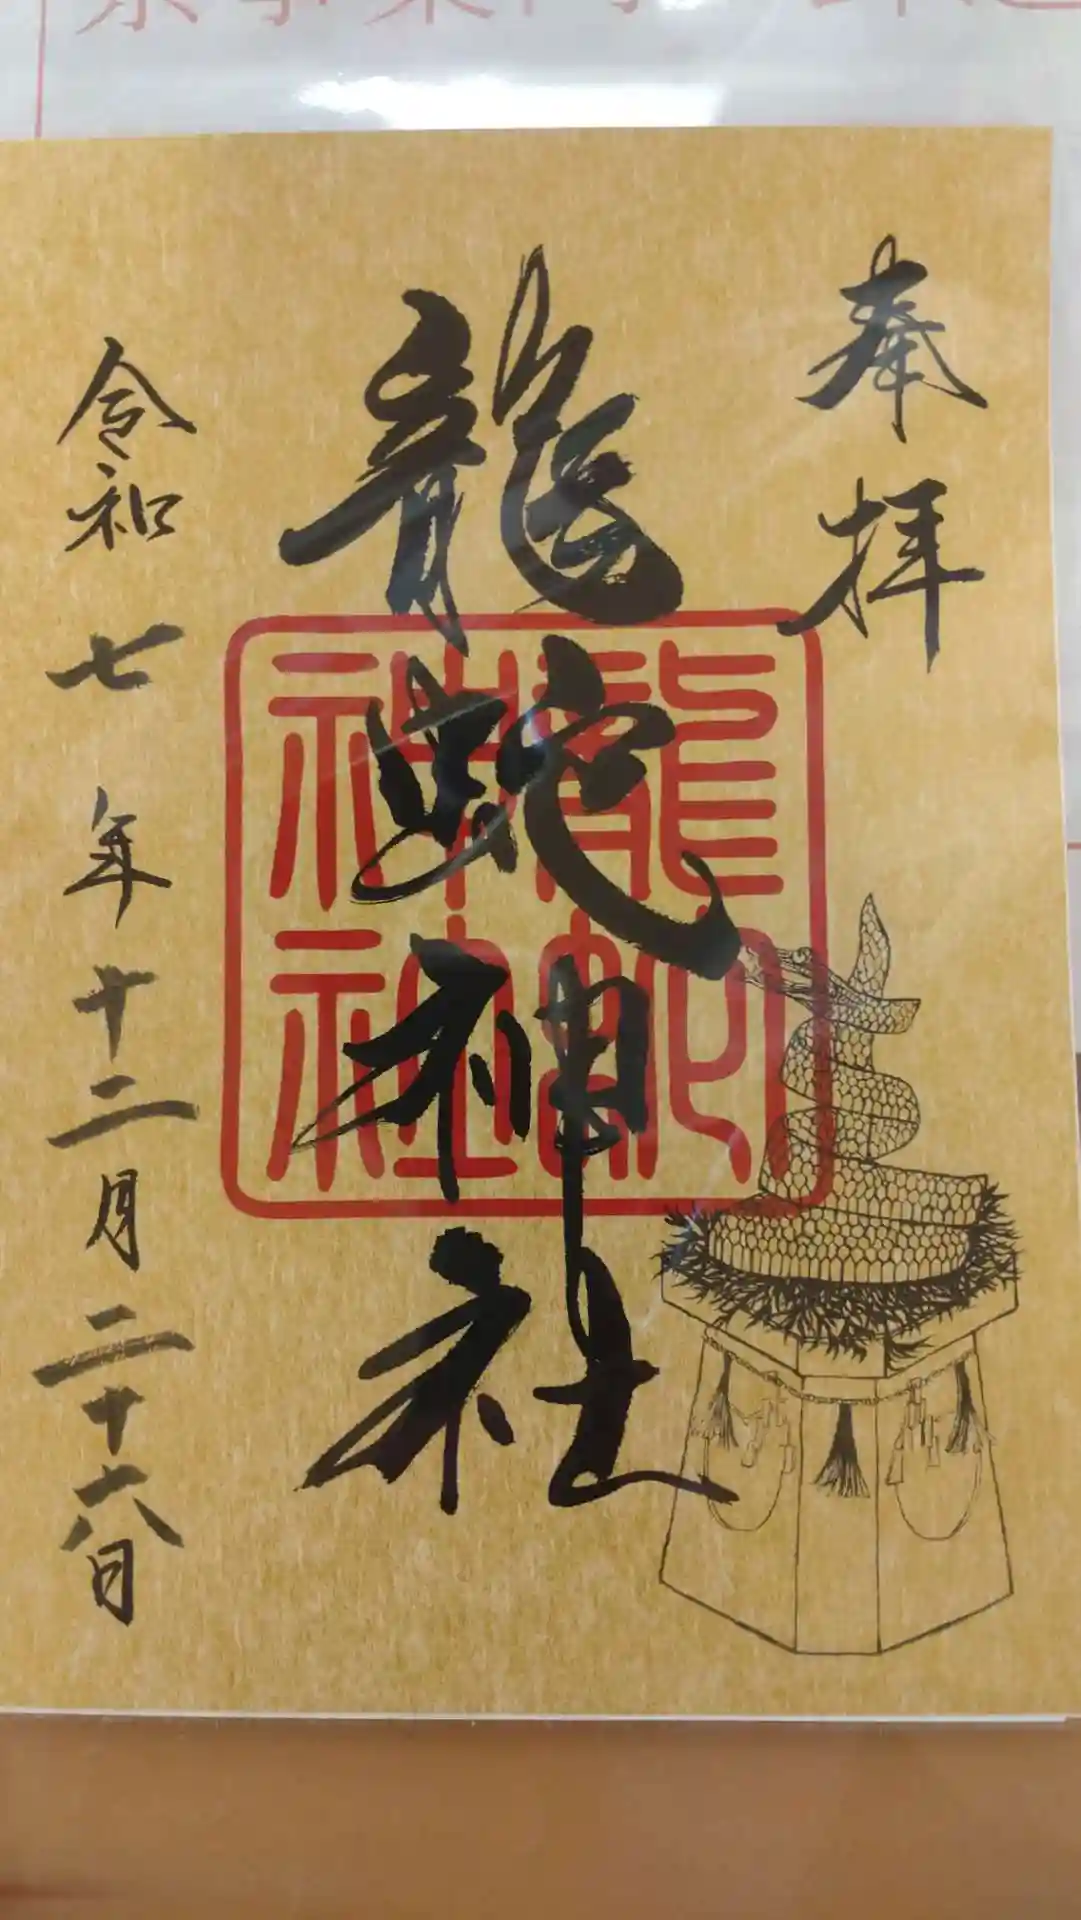 奉拝
龍蛇神社
龍蛇神社
令和七年十二月二十六日